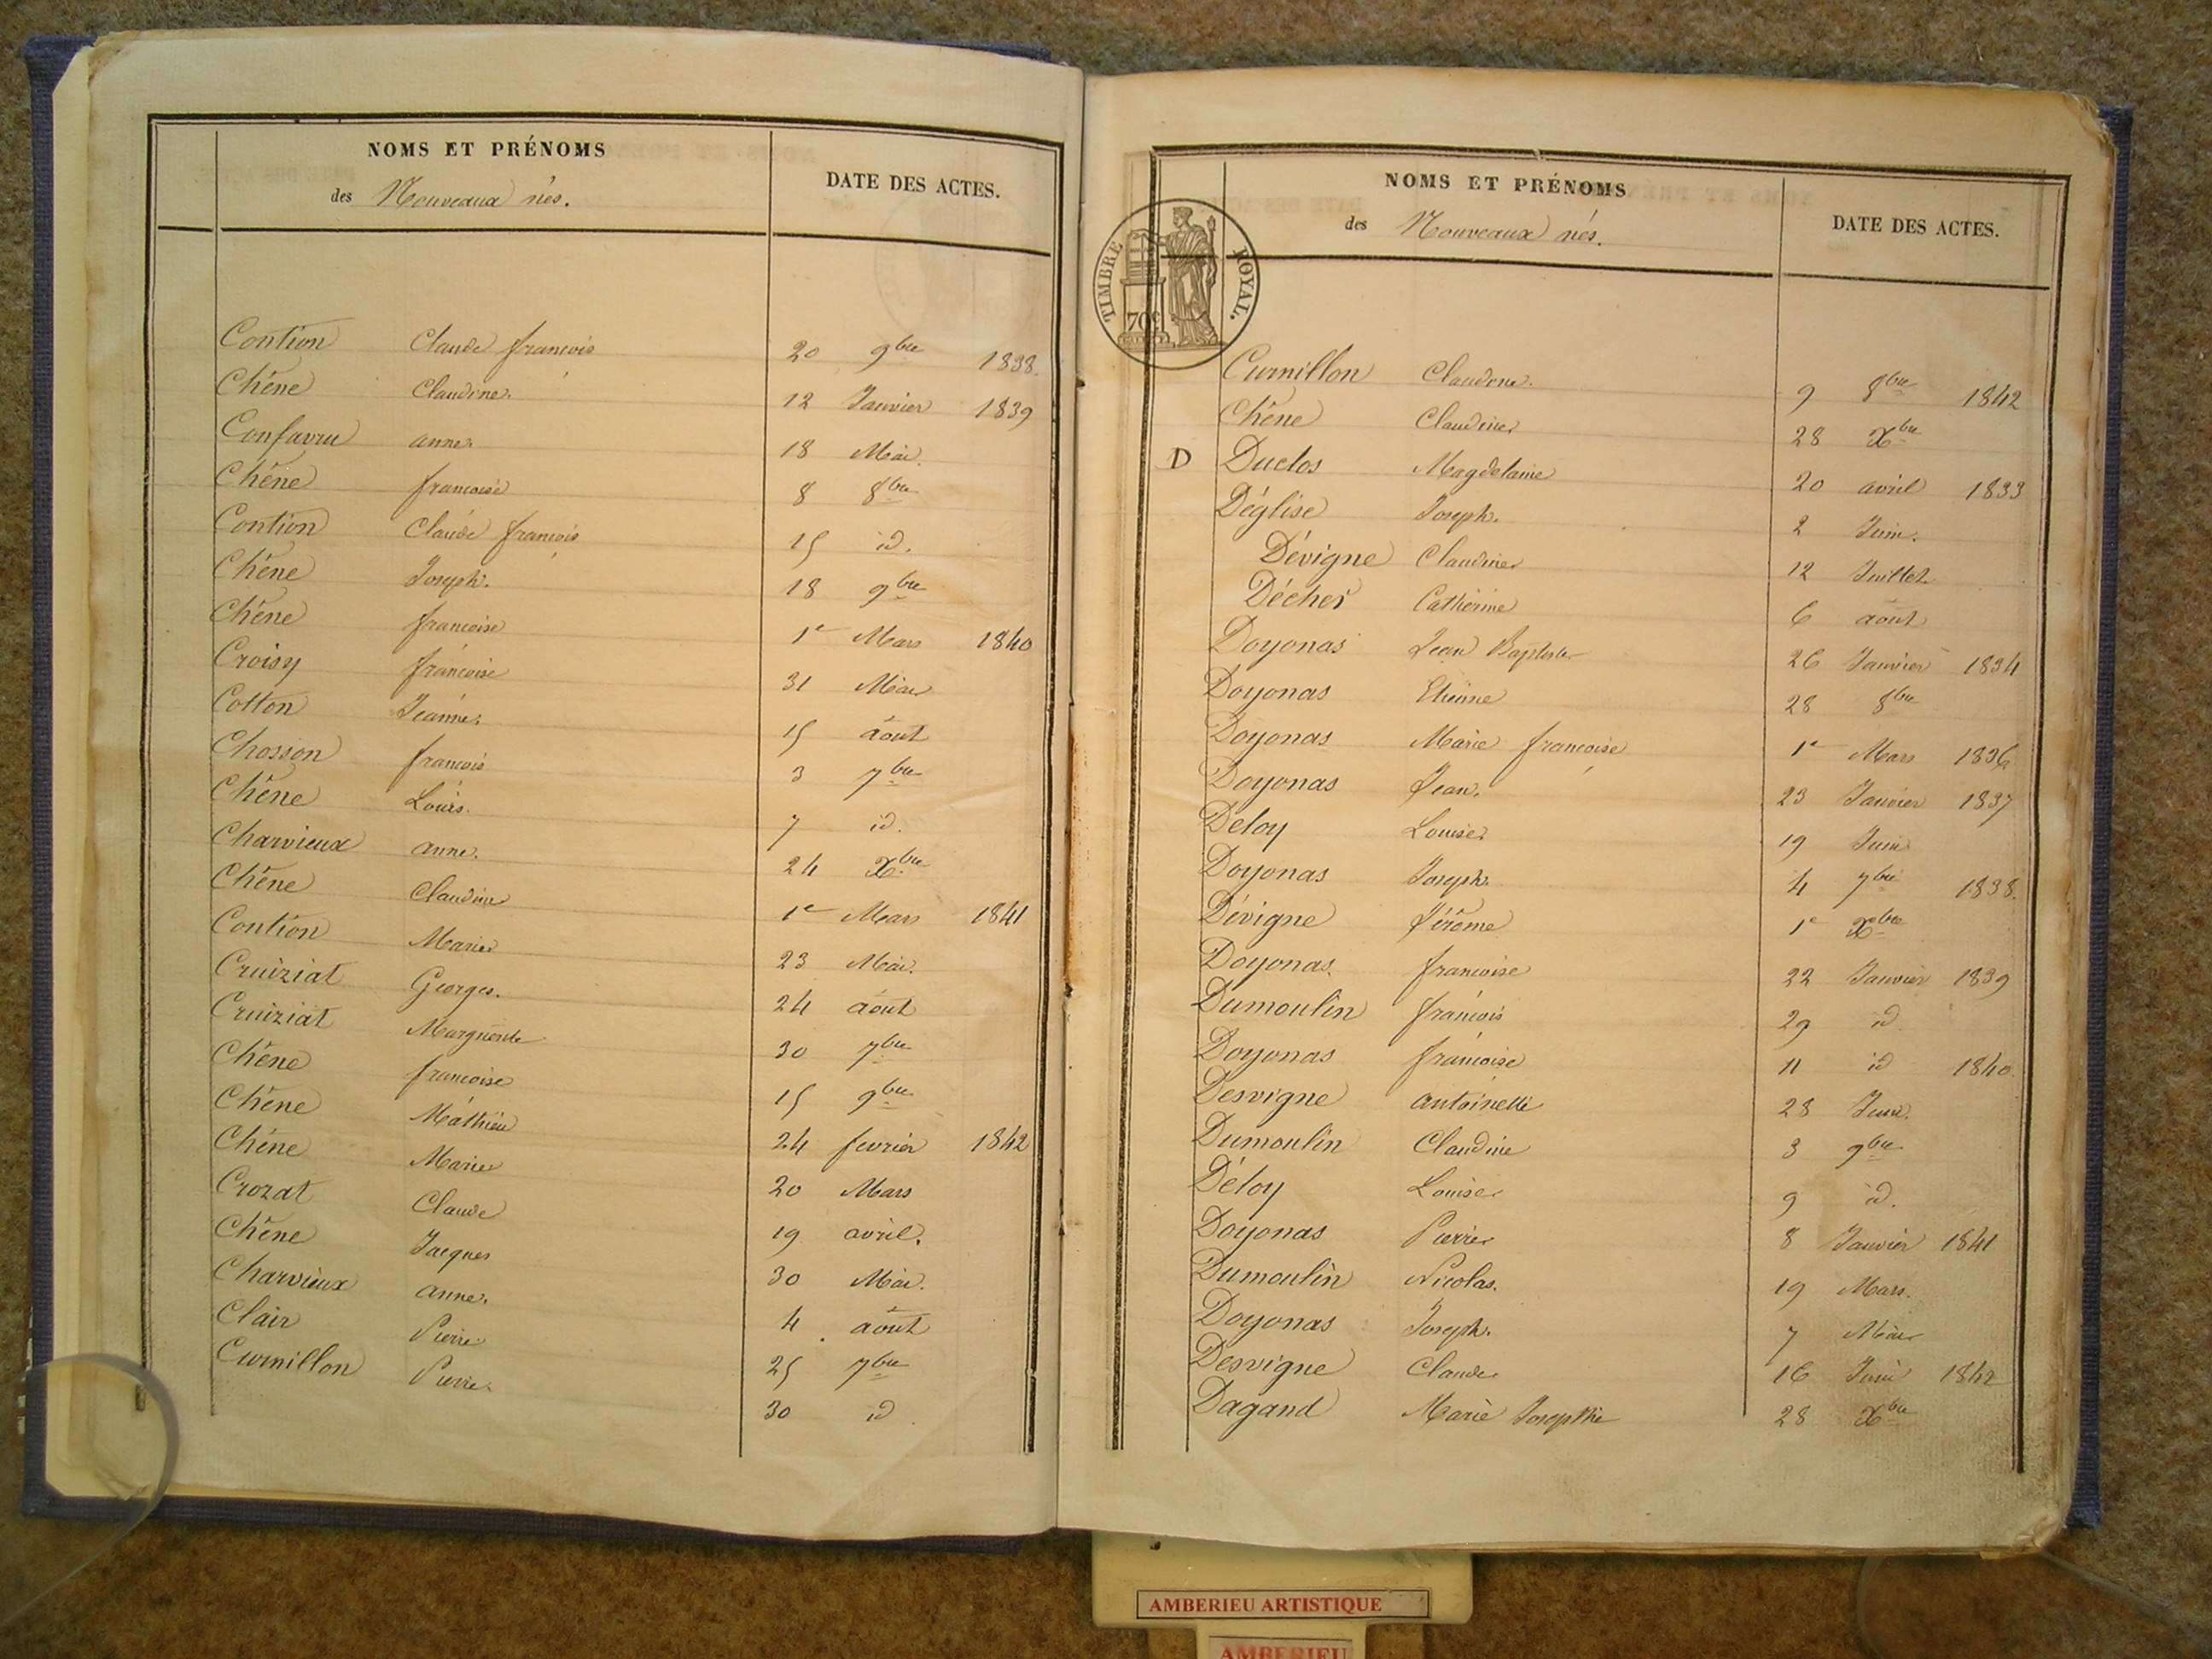 NOMS ET PRÉNOMS
des Nouveaux nés.
DATE DES ACTES.
Contion Claude françois 20 9bre 1838.
Chêne Claudine. 12 Janvier 1839
Confavru anne 18 Mai.
Chêne françoise 8 8bre
Contion Claude françois 15 id.
Chêne Joseph. 18 9bre
Chêne françoise 1er Mars 1840
Croisy françoise 31 Mai
Cotton Jeanne. 15 aout
Chosson françois 3 7bre
Chêne Louis. 7 id.
Charvieux anne. 24 Xbre
Chêne Claudine 1er Mars 1841
Contion Marie 23 Mai.
Cruiziat Georges. 24 aout
Cruiziat Marguerite 30 7bre
Chêne françoise 15 9bre
Chêne Mathieu 24 fevrier 1842
Chêne Marie 20 Mars
Crozat Claude 19 avril.
Chêne Jacques 30 Mai.
Charvieux anne. 4 aout
Clair Pierre 25 7bre
Curnillon Pierre. 30 id.
NOMS ET PRÉNOMS
des Nouveaux nés.
DATE DES ACTES.
TIMBRE ROYAL.
70c
Curnillon Claudine. 9 8bre 1842
Chêne Claudine 28 Xbre
D Duclos Magdelaine 20 avril 1833
Déglise Joseph. 2 Juin.
Dévigne Claudine 12 Juillet
Déches Catherine 6 aout
Doyonas Jean Baptiste 26 Janvier 1834
Doyonas Etienne 28 8bre
Doyonas Marie françoise 1er Mars 1836
Doyonas Jean. 23 Janvier 1837
Déloy Louise 19 Juin
Doyonas Joseph. 4 7bre 1838.
Dévigne Jérôme 1er Xbre
Doyonas françoise 22 Janvier 1839
Dumoulin françois 29 id
Doyonas françoise 11 id 1840.
Desvigne antoinette 28 Juin.
Dumoulin Claudine 3 9bre
Déloy Louise 9 id.
Doyonas Pierre 8 Janvier 1841
Dumoulin Nicolas. 19 Mars.
Doyonas Joseph. 7 Mai
Desvigne Claude 16 Juin 1842
Dagand Marie Josephte 28 Xbre
AMBERIEU ARTISTIQUE
AMBERIEU